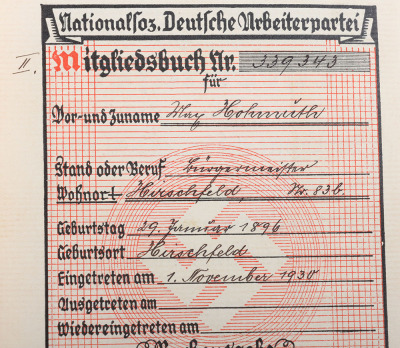 Nationalsoz. Deutsche Arbeiterpartei
II. Mitgliedsbuch Nr. 339343
für
Vor- und Zuname Max Hohmuth
Stand oder Beruf Bürgermeister
Wohnort Hirschfeld, Nr. 83b.
Geburtstag 29. Januar 1896
Geburtsort Hirschfeld
Eingetreten am 1. November 1930
Ausgetreten am
Wiedereingetreten am